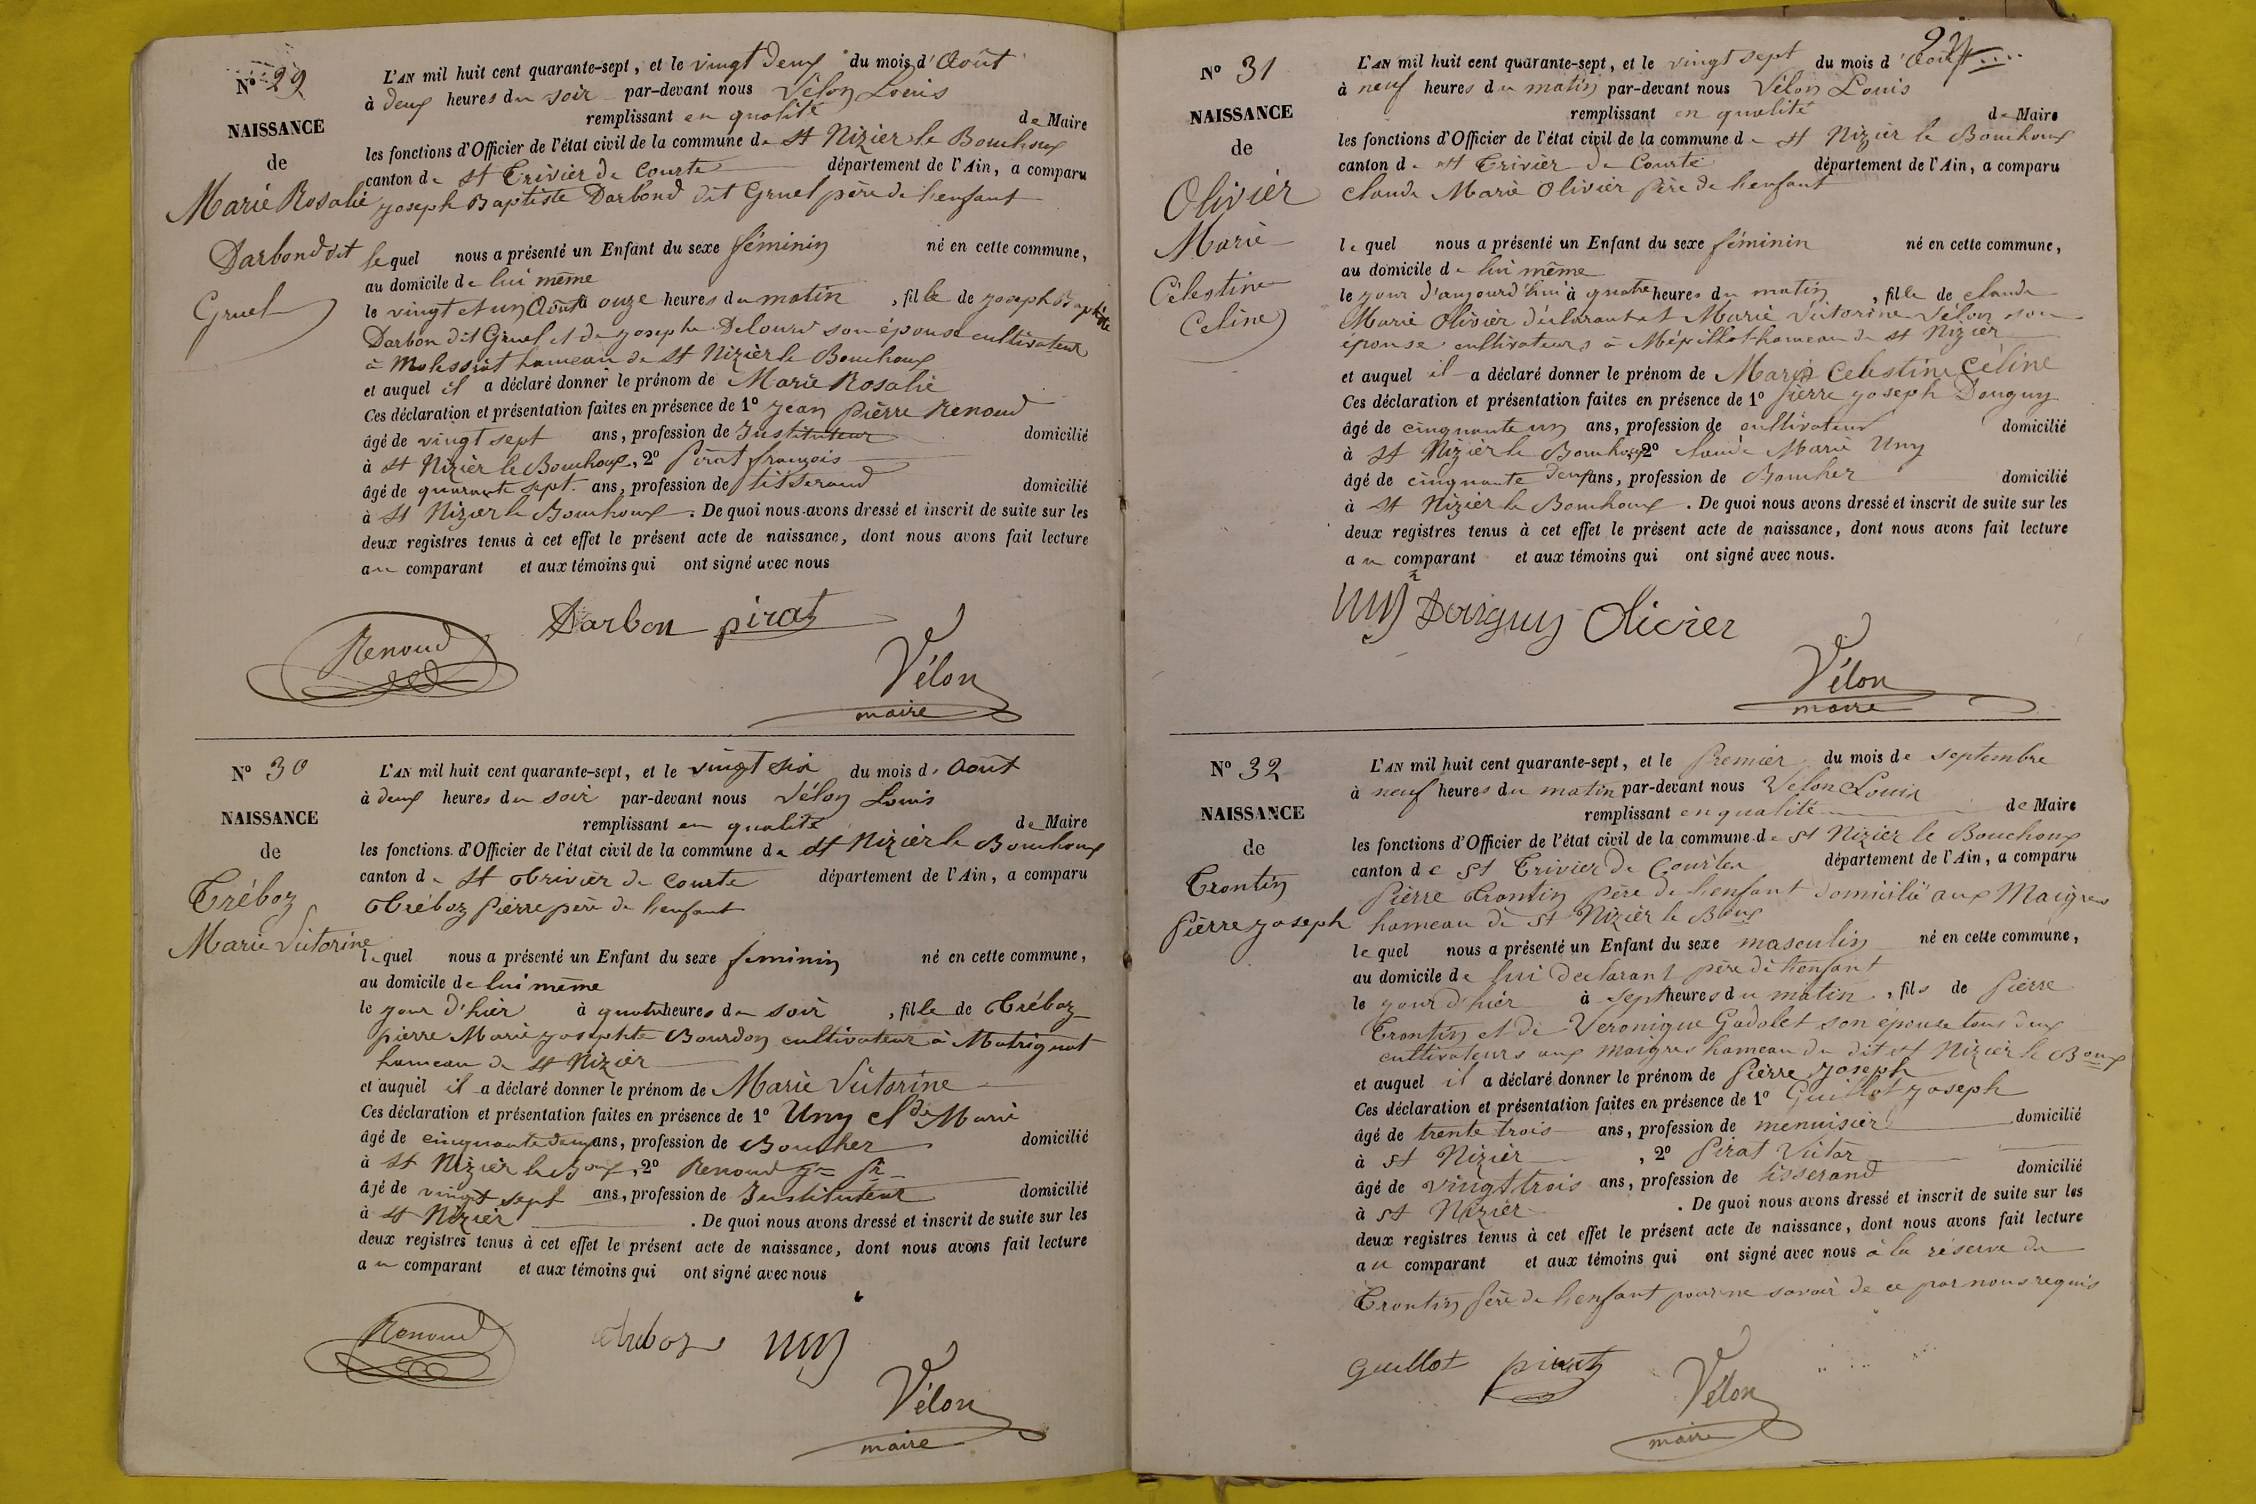 N° 29
NAISSANCE
de
Marie Rosalie
Darbond dit
Gruel
L'AN mil huit cent quarante-sept, et le vingt deux du mois d'Août
à deux heures du soir par-devant nous Vélon Louis
remplissant en qualité de Maire
les fonctions d'Officier de l'état civil de la commune de St Nizier le Bouchoux
canton de St Trivier de Courte département de l'Ain, a comparu
joseph Baptiste Darbond dit Gruel père de l'enfant
lequel nous a présenté un Enfant du sexe féminin né en cette commune,
au domicile de lui même
le vingt et un Août à onze heures du matin, fille de joseph Baptiste
Darbon dit Gruel et de josephe Delourd son épouse cultivateur
à Molessiat hameau de St Nizier le Bouchoux
et auquel il a déclaré donner le prénom de Marie Rosalie
Ces déclaration et présentation faites en présence de 1° jean pièrre Renoud
âgé de vingt sept ans, profession de Instituteur domicilié
à St Nizier le Bouchoux, 2° Pirat françois
âgé de quarante sept ans, profession de tisserand domicilié
à St Nizier le Bouchoux. De quoi nous avons dressé et inscrit de suite sur les
deux registres tenus à cet effet le présent acte de naissance, dont nous avons fait lecture
au comparant et aux témoins qui ont signé avec nous
Darbon pirat
Renoud
Vélon
maire
N° 30
NAISSANCE
de
Tréboz
Marie Victorine
L'AN mil huit cent quarante-sept, et le vingt six du mois d'Août
à deux heures du soir par-devant nous Vélon Louis
remplissant en qualité de Maire
les fonctions d'Officier de l'état civil de la commune de St Nizier le Bouchoux
canton de St Trivier de Courte département de l'Ain, a comparu
Tréboz Pierre père de l'enfant
lequel nous a présenté un Enfant du sexe féminin né en cette commune,
au domicile de lui même
le jour d'hier à quatre heures du soir, fille de Tréboz
pierre Marie josephte Bourdon cultivateur à Matrignat
hameau de St Nizier
et auquel il a déclaré donner le prénom de Marie Victorine
Ces déclaration et présentation faites en présence de 1° Uny Cl de Marie
âgé de cinquante deux ans, profession de Boucher domicilié
à St Nizier le Boux, 2° Renoud jn pre
âgé de vingt sept ans, profession de Instituteur domicilié
à St Nizier. De quoi nous avons dressé et inscrit de suite sur les
deux registres tenus à cet effet le présent acte de naissance, dont nous avons fait lecture
au comparant et aux témoins qui ont signé avec nous
Renoud Treboz uny
Vélon
maire
N° 31
NAISSANCE
de
Olivier
Marie
Célestine
Celine
L'AN mil huit cent quarante-sept, et le vingt sept du mois d'Août
à neuf heures du matin par-devant nous Vélon Louis
remplissant en qualité de Maire
les fonctions d'Officier de l'état civil de la commune de St Nizier le Bouchoux
canton de St Trivier de Courte département de l'Ain, a comparu
claude Marie Olivier père de l'enfant
lequel nous a présenté un Enfant du sexe féminin né en cette commune,
au domicile de lui même
le jour d'aujourd'hui à quatre heures du matin, fille de claude
Marie Olivier déclarant et Marie Victorine Vélon son
épouse cultivateurs à Mépillat hameau de St Nizier
et auquel il a déclaré donner le prénom de Marie Celestine Céline
Ces déclaration et présentation faites en présence de 1° pierre joseph Donguy
âgé de cinquante un ans, profession de cultivateur domicilié
à St Nizier le Bouchoux 2° claude Marie Uny
âgé de cinquante deux ans, profession de Boucher domicilié
à St Nizier le Bouchoux. De quoi nous avons dressé et inscrit de suite sur les
deux registres tenus à cet effet le présent acte de naissance, dont nous avons fait lecture
au comparant et aux témoins qui ont signé avec nous.
uny Donguy Olivier
Vélon
maire
N° 32
NAISSANCE
de
Trontin
Pièrre joseph
L'AN mil huit cent quarante-sept, et le Premier du mois de septembre
à neuf heures du matin par-devant nous Vélon Louis
remplissant en qualité de Maire
les fonctions d'Officier de l'état civil de la commune de St Nizier le Bouchoux
canton de St Trivier de Courtes département de l'Ain, a comparu
Pièrre Trontin père de l'enfant domicilié aux Maigres
hameau de St Nizier le Boux
lequel nous a présenté un Enfant du sexe masculin né en cette commune,
au domicile de lui declarant père de l'enfant
le jour d'hier à sept heures du matin, fils de Pierre
Trontin et de Veronique Gadolet son épouse tous deux
cultivateurs aux maigres hameau du dit St Nizier le Boux
et auquel il a déclaré donner le prénom de Pièrre joseph
Ces déclaration et présentation faites en présence de 1° Guillot joseph
âgé de trente trois ans, profession de menuisier domicilié
à St Nizier, 2° Pirat Victor
âgé de vingt trois ans, profession de tisserand domicilié
à St Nizier. De quoi nous avons dressé et inscrit de suite sur les
deux registres tenus à cet effet le présent acte de naissance, dont nous avons fait lecture
au comparant et aux témoins qui ont signé avec nous à la réserve du
Trontin père de l'enfant pour ne savoir de ce par nous requis
Guillot pirat
Vélon
maire